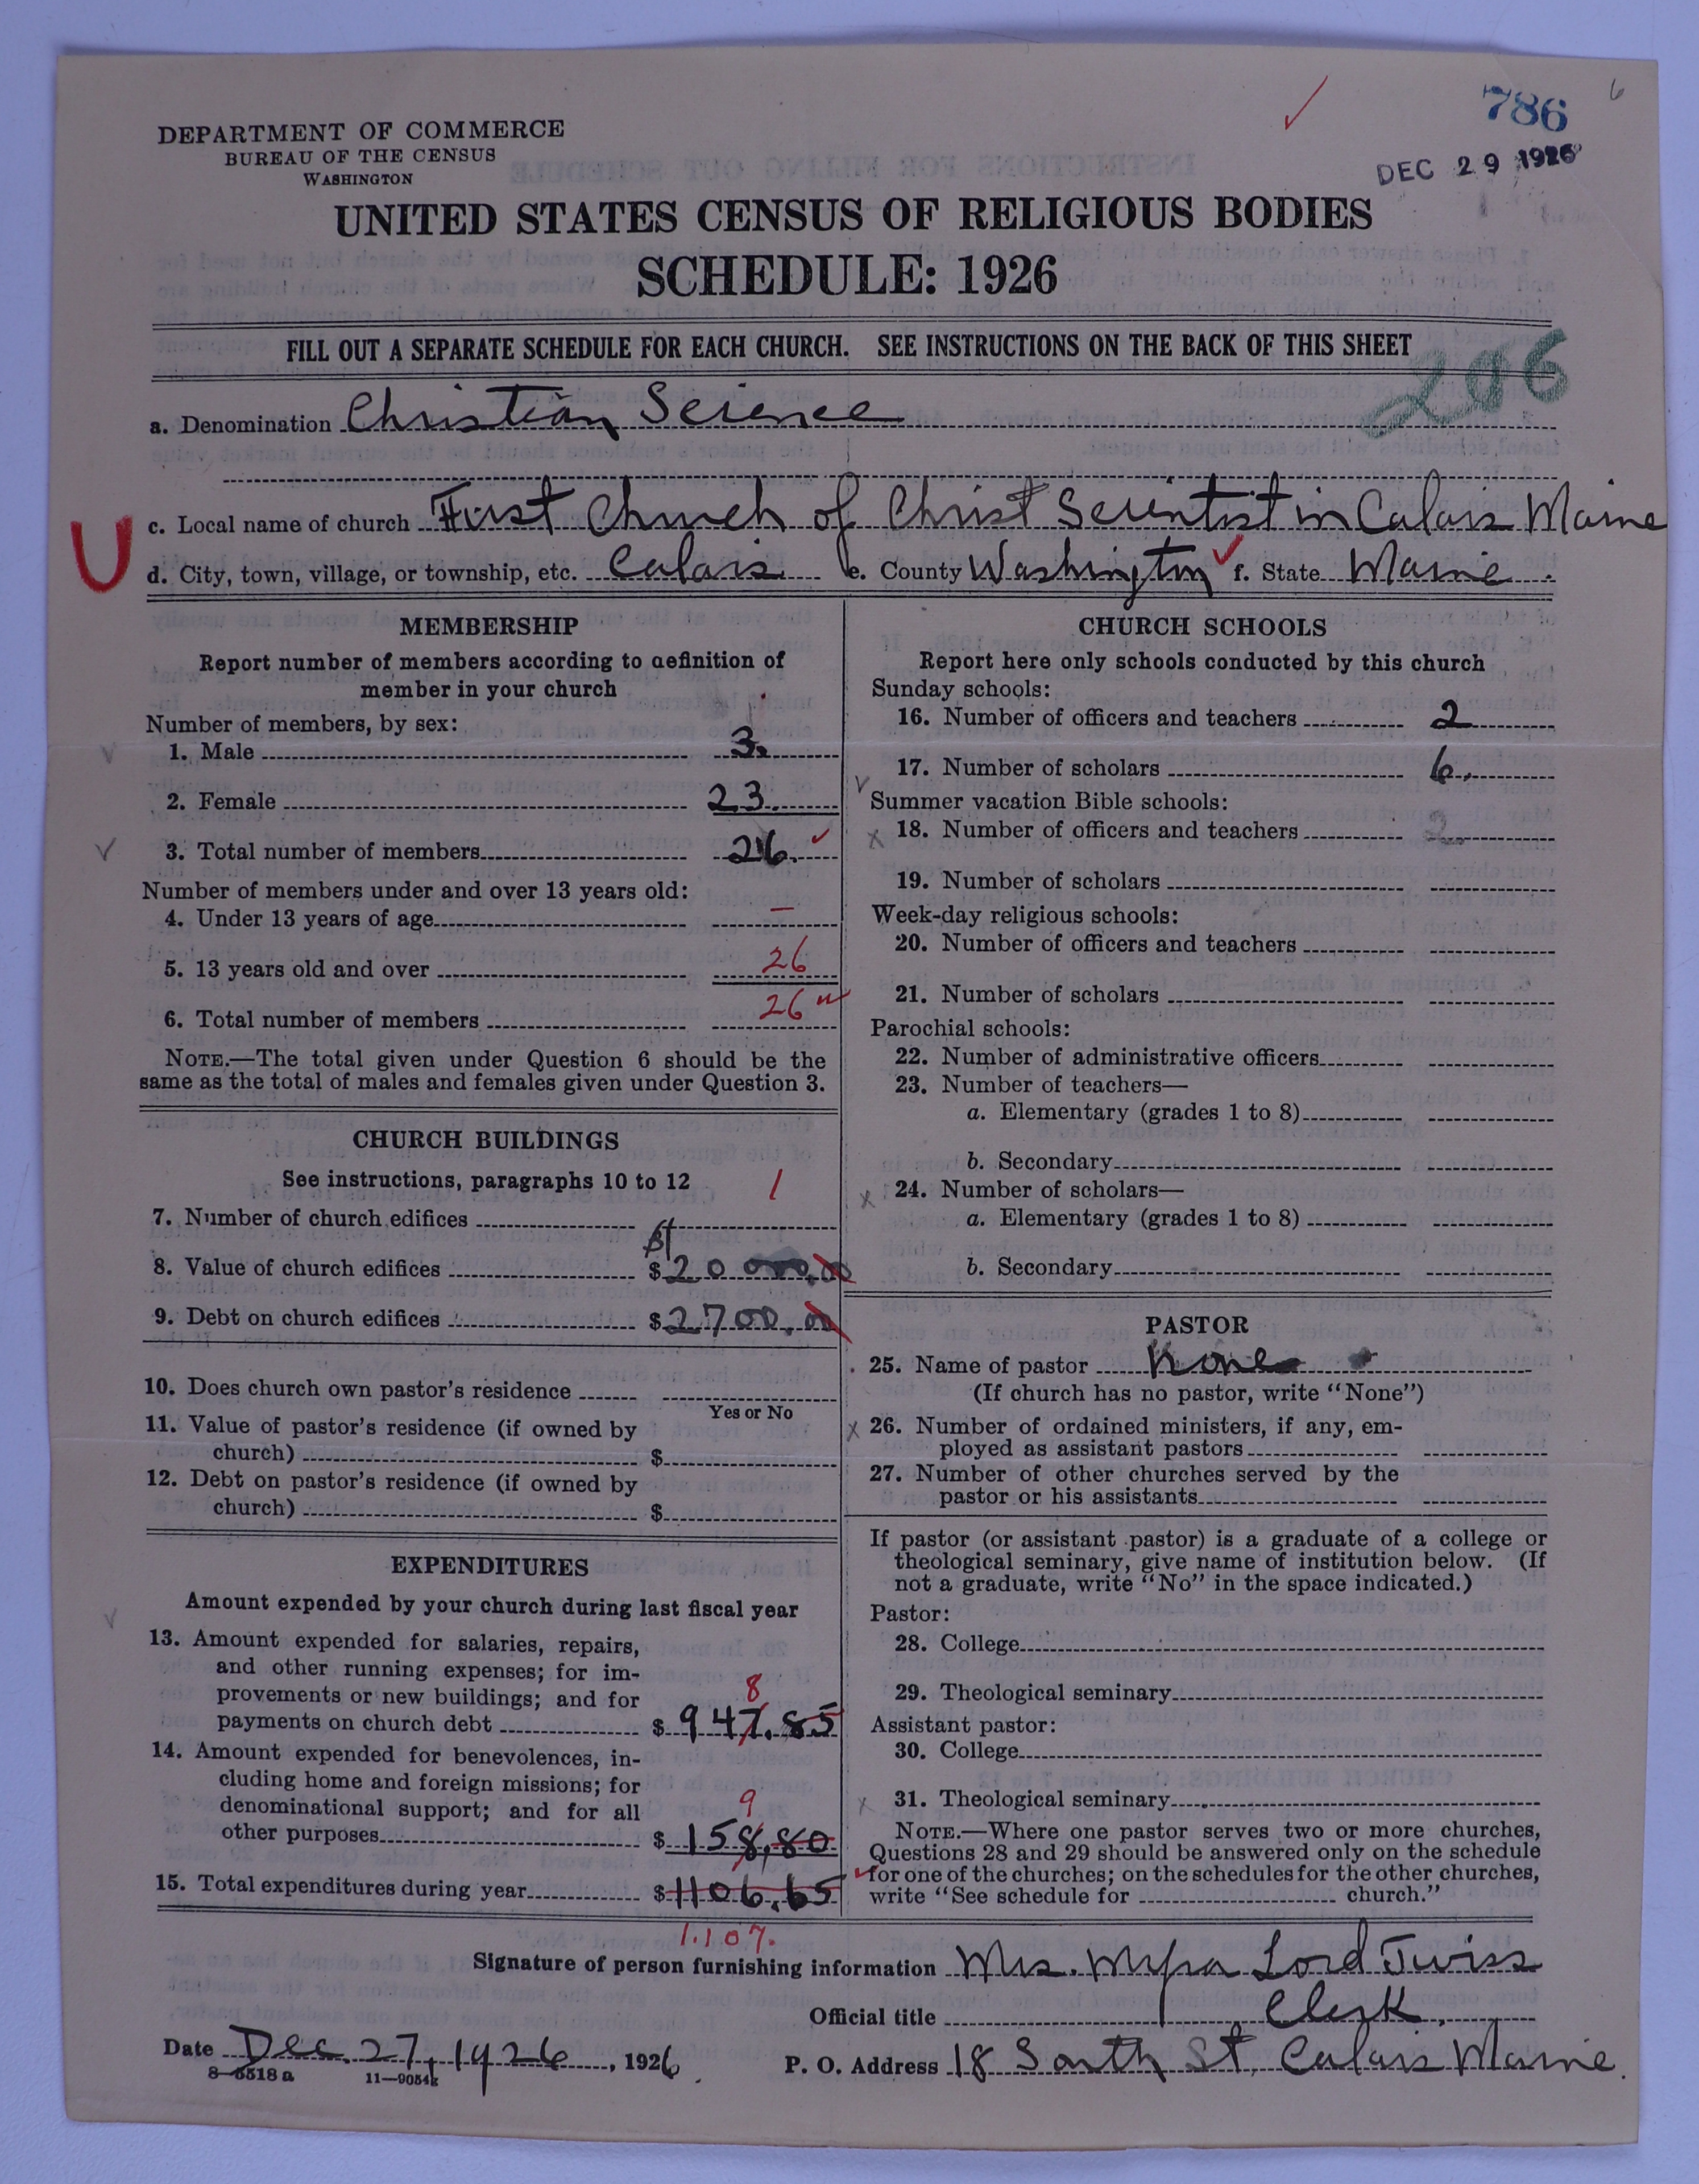 786
6
DEC 29 1926
DEPARTMENT OF COMMERCE
BUREAU OF THE CENSUS
WASHINGTON
UNITED STATES CENSUS OF RELIGIOUS BODIES
SCHEDULE: 1926
FILL OUT A SEPARATE SCHEDULE FOR EACH CHURCH. SEE INSTRUCTIONS ON THE BACK OF THIS SHEET
206
a. Denomination Christian Science
c. Local name of church First Church of Christ Scientist in Calais Maine
U
d. City, town, village, or township, etc. Calais e. County Washington f. State Maine.
MEMBERSHIP
Report number of members according to definition of
member in your church
Number of members, by sex:
1. Male 3.
2. Female 23.
3. Total number of members 26.
Number of members under and over 13 years old:
4. Under 13 years of age —
5. 13 years old and over 26
6. Total number of members 26
NOTE.—The total given under Question 6 should be the
same as the total of males and females given under Question 3.
CHURCH BUILDINGS
See instructions, paragraphs 10 to 12
7. Number of church edifices 1
8. Value of church edifices $20 000.00
9. Debt on church edifices $2700.00
10. Does church own pastor's residence
Yes or No
11. Value of pastor's residence (if owned by
church) $
12. Debt on pastor's residence (if owned by
church) $
EXPENDITURES
Amount expended by your church during last fiscal year
13. Amount expended for salaries, repairs,
and other running expenses; for im-
provements or new buildings; and for 8
payments on church debt $ 947.85
14. Amount expended for benevolences, in-
cluding home and foreign missions; for
denominational support; and for all 9
other purposes $ 158.80
15. Total expenditures during year $1106.65
1.107.
CHURCH SCHOOLS
Report here only schools conducted by this church
Sunday schools:
16. Number of officers and teachers 2
17. Number of scholars 6.
Summer vacation Bible schools:
18. Number of officers and teachers 2
19. Number of scholars
Week-day religious schools:
20. Number of officers and teachers
21. Number of scholars
Parochial schools:
22. Number of administrative officers
23. Number of teachers—
a. Elementary (grades 1 to 8)
b. Secondary
24. Number of scholars—
a. Elementary (grades 1 to 8)
b. Secondary
PASTOR
25. Name of pastor None
(If church has no pastor, write "None")
26. Number of ordained ministers, if any, em-
ployed as assistant pastors
27. Number of other churches served by the
pastor or his assistants
If pastor (or assistant pastor) is a graduate of a college or
theological seminary, give name of institution below. (If
not a graduate, write "No" in the space indicated.)
Pastor:
28. College
29. Theological seminary
Assistant pastor:
30. College
31. Theological seminary
NOTE.—Where one pastor serves two or more churches,
Questions 28 and 29 should be answered only on the schedule
for one of the churches; on the schedules for the other churches,
write "See schedule for church."
Signature of person furnishing information Mrs. Lord Twiss
Official title Clerk.
Date Dec. 27, 1926, 1926.
P. O. Address 18 South St. Calais Maine.
8-5518 a 11-9054